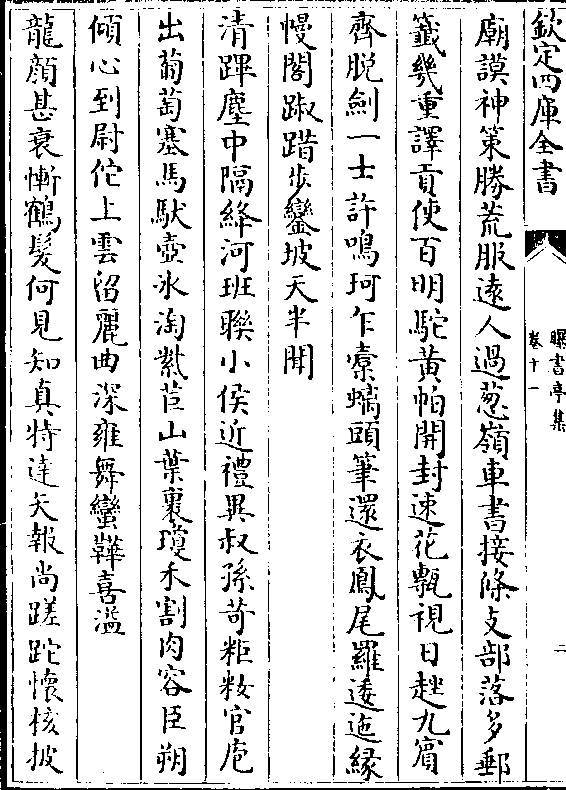 欽定四庫全書
曝書亭集
卷十一
二
廟謨神策勝荒服遠人過蔥嶺車書接條支部落多郵
籤幾重譯貢使百明駝黃帕開封速花甎視日趖九賓
齊脫劍一士許鳴珂乍橐螭頭筆還衣鳳尾羅逶迤緣
幔閣踧踖步鑾坡天半聞
清蹕塵中隔絳河班聯小侯近禮異叔孫苛粔籹官庖
出葡萄塞馬馱壺氷淘紫苣山葉裹瓊禾割肉容臣朔
傾心到尉佗上雲留麗曲深雍舞蠻鞾喜溢
龍顔甚衰慚鶴髮何見知真特達天報尚蹉跎懷核披